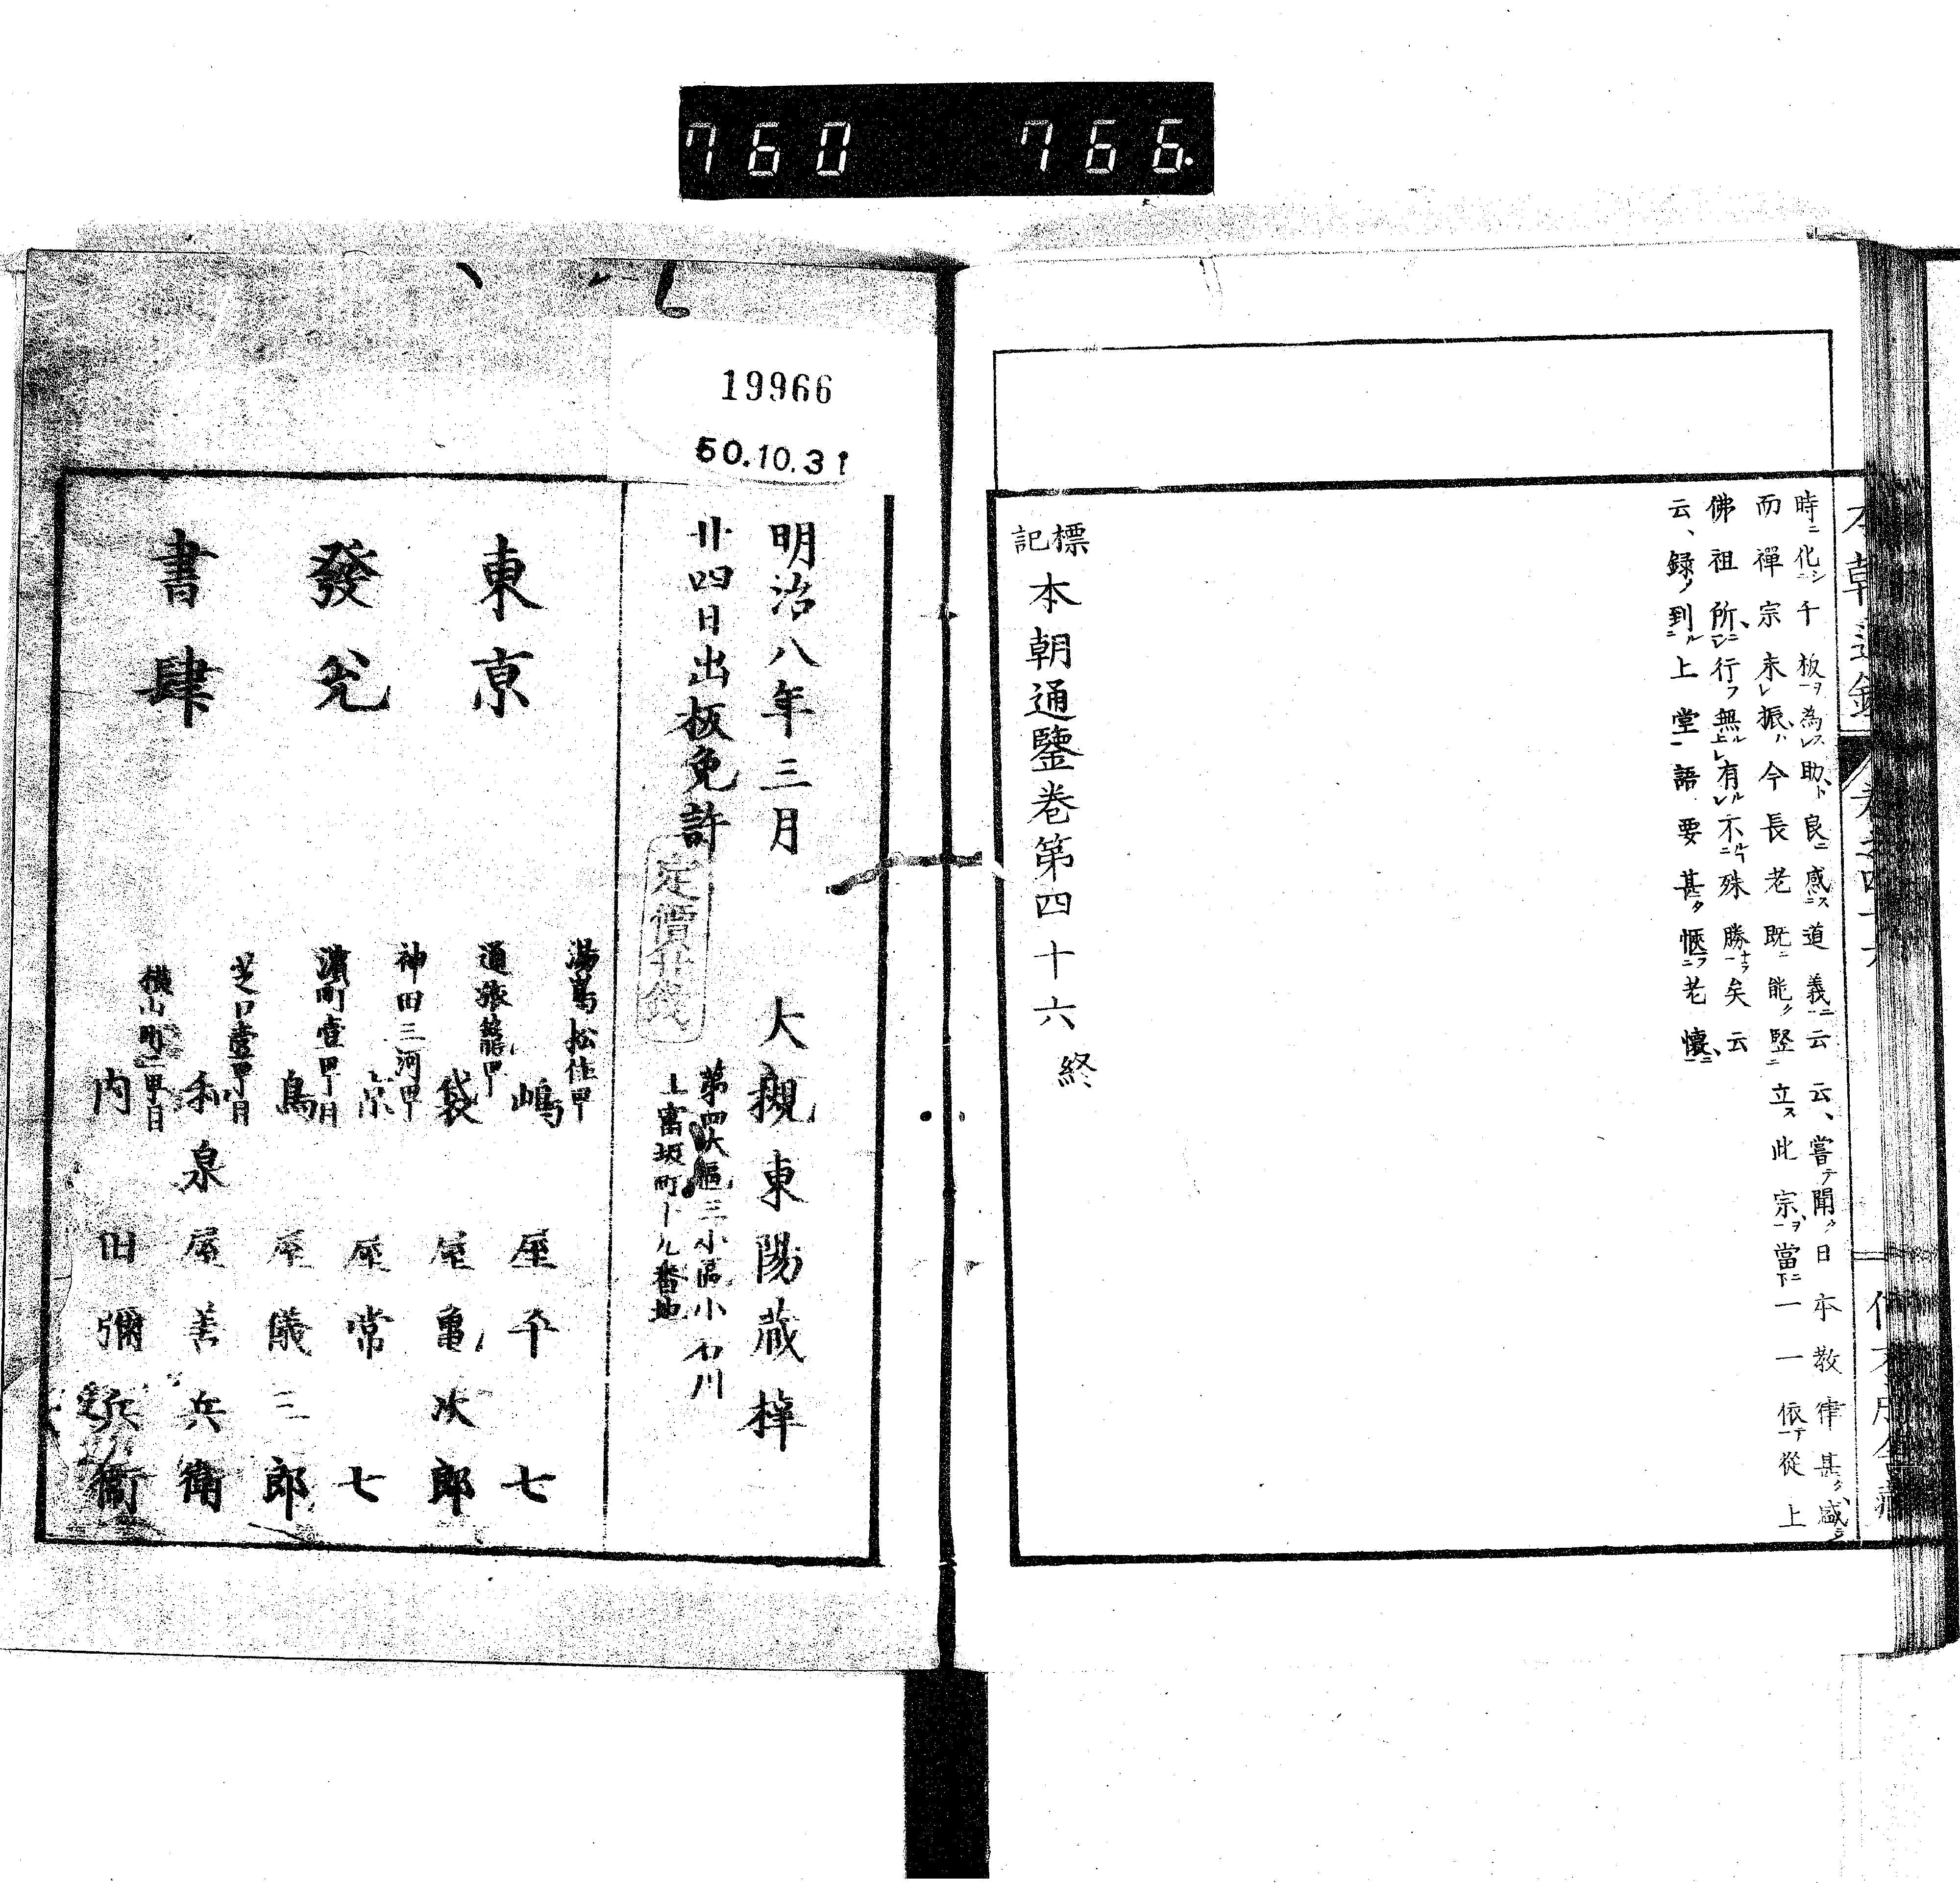 760 766.
時ニ化シニ千板ヲ一為スレ助ト良ニ感スニ道義ニ一云云、嘗テ聞ク日本教律甚タ盛ラ
而禪宗未レ振ハ今長老既ニ能ク竪ニ立ス此宗ヲ一當ニ下一一依テ一從上
佛祖所ニ行フ無ル上レ有ルレ不ルニ殊勝ナラ一矣云
云、録ノ到ルニ上堂一語要甚タ愜フニ老懷ニ一
標記 本朝通鑒巻第四十六 終
19966
50.10.31
明治八年三月
廿四日出板免許
定價
大槻東陽蔵梓
第四大區三小區小石川
上富坂町 番地
東京
發兌
書肆
嶋屋平七
袋屋亀次郎
神田三河町
京屋常七
濱町壹町目
鳥屋儀三郎
芝口壹町目
和泉屋善兵衛
横山町
内田彌兵衛